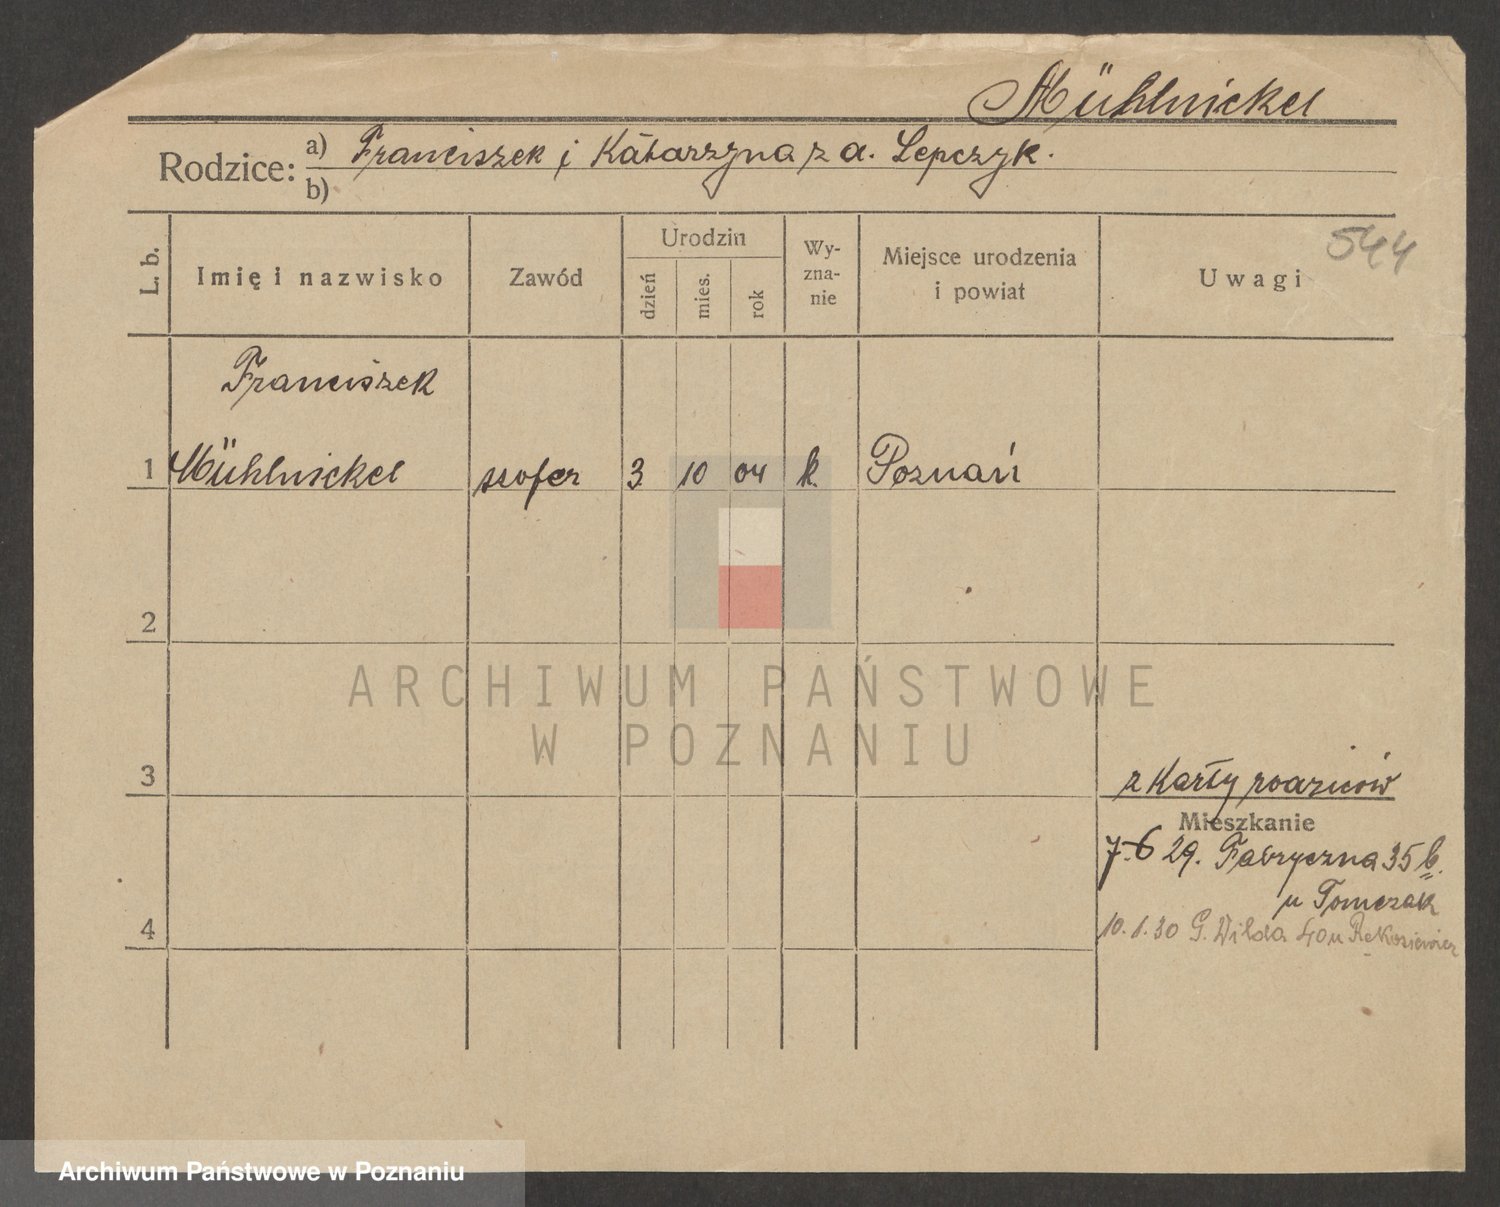 Mühlnickel
Rodzice: a) Franciszek i Katarzyna z d. Lepczyk.
b)
544
L. b.
Imię i nazwisko
Zawód
Urodzin
dzień
mies.
rok
Wy-
zna-
nie
Miejsce urodzenia
i powiat
Uwagi
Franciszek
1 Mühlnickel szofer 3 10 04 k. Poznań
2
ARCHIWUM PAŃSTWOWE
W POZNANIU
3
z karty rodziców
Mieszkanie
7-6 29. Fabryczna 35 b.
u Tomczak
4
10.1.30 G. Wilda 40 u
Archiwum Państwowe w Poznaniu